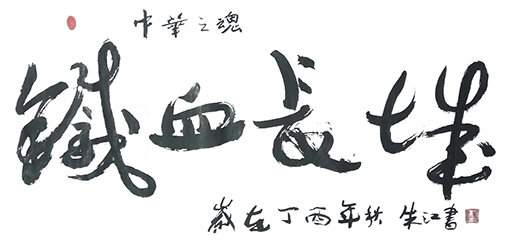 中華之魂
鐵血長城
歲在丁酉年秋 朱江書